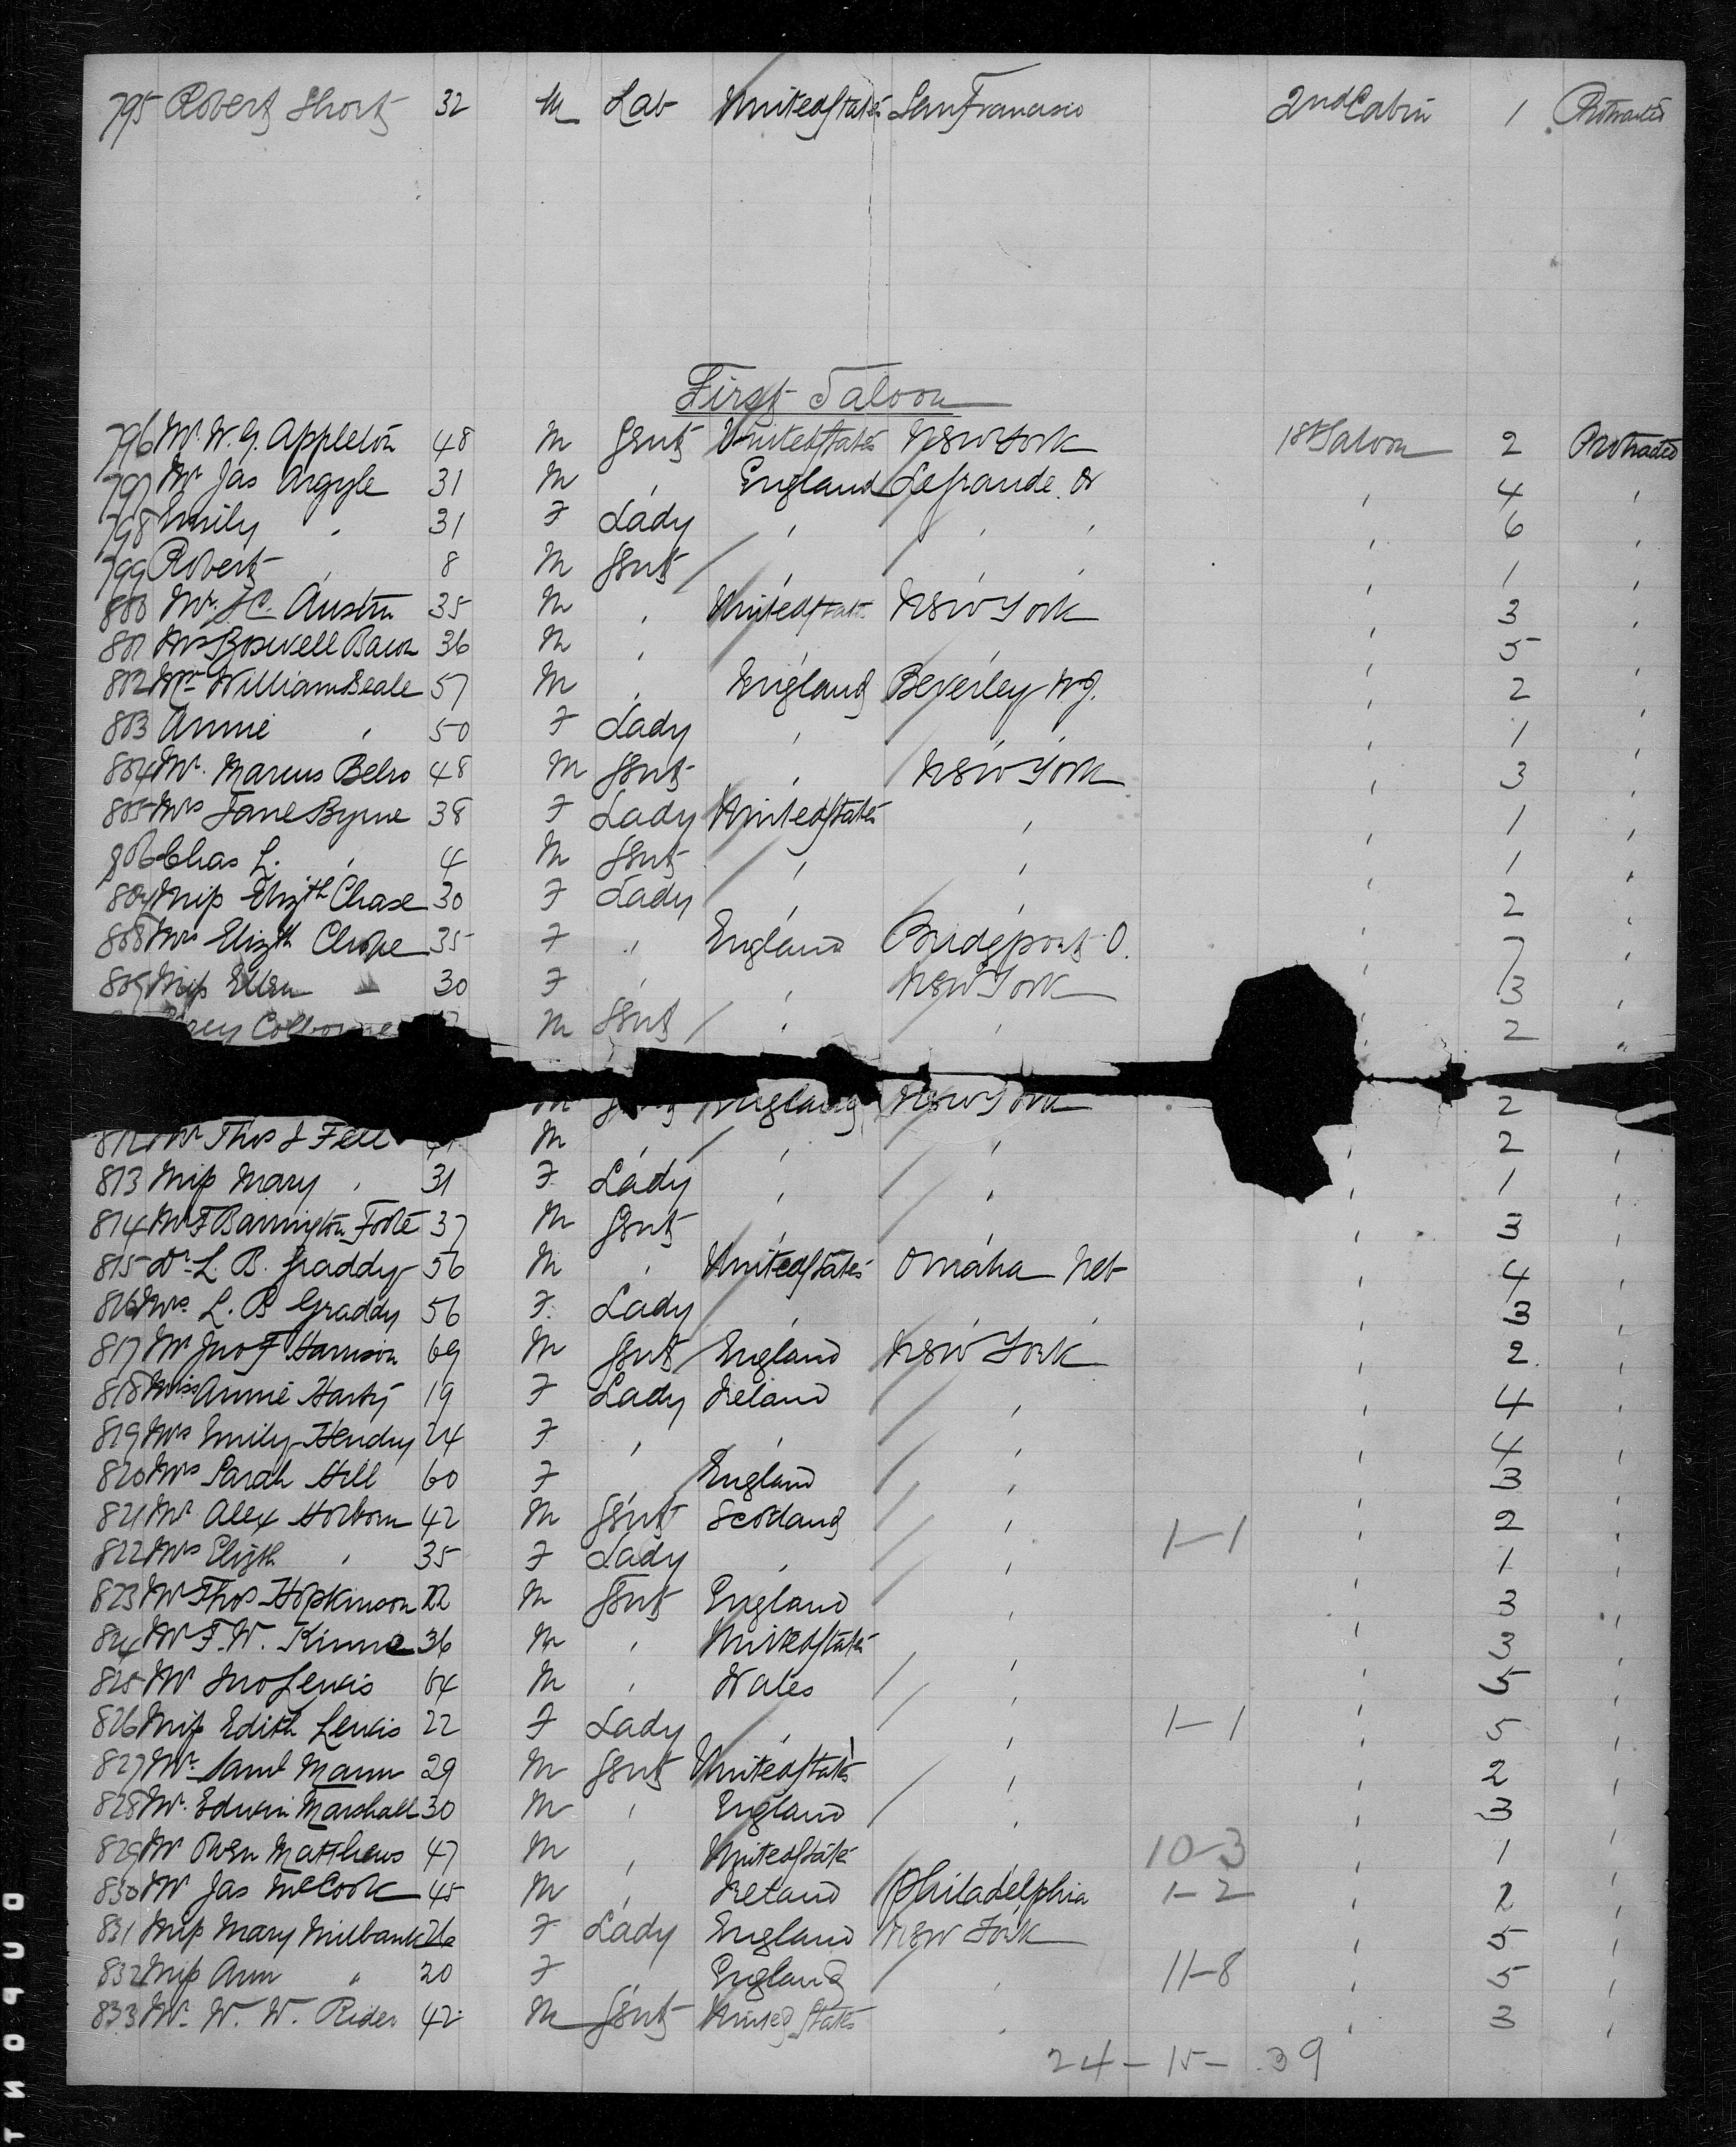 795 Robert Short 32 M Lab United States San Francisco 2nd Cabin 1 Protracted
First Saloon
796 Mr. W. G. Appleton 48 M Gent United States New York 1st Saloon 2 Protracted
797 Mr Jas Argyle 31 M " England Legrande Or " 4 "
798 Emily " 31 F Lady " " " " 6 "
799 Robert " 8 M Gent " " " " 1 "
800 Mr. J.C. Austin 35 M " United States New York " 3 "
801 Boswell Bacon 36 M " " " " 5 "
802 Mr William Beale 57 M " England Beverley " 2 "
803 Annie " 50 F Lady " " " " 1 "
804 Mr. Marcus 48 M Gent " New York " 3 "
805 Mrs Jane Byrne 38 F Lady United States " " 1 "
806 Chas L. " 4 M Gent " " " 1 "
807 Miss Elizth Chase 30 F Lady " " " 2 "
808 Mrs Elizth 35 F " England Bridgport O. " 7 "
809 Miss Ellen " 30 F " " New York " 3 "
Colborne M Gent " " " 2 "
M England New York 2
812 Mr Thos J Fell M " " " " 2 "
813 Miss Mary " 31 F Lady " " " 1 "
814 Mr F Barrington Foote 37 M Gent " " " 3 "
815 Dr. L. B. Graddy 56 M " United States Omaha Neb " 4 "
816 Mrs. L. B Graddy 56 F Lady " " " " 3 "
817 Mr Jno F Harrison 69 M Gent England New York " 2 "
818 Miss Annie 19 F Lady Ireland " " 4 "
819 Mrs Emily Hendry 24 F " " " " 4 "
820 Mrs Sarah Hill 60 F " England " " 3 "
821 Mr Alex Holborn 42 M Gent Scotland " 1-1 " 2 "
822 Mrs Elizth " 35 F Lady " " " 1 "
823 Mr Thos Hopkinson 22 M Gent England " " 3 "
824 Mr F. W. Kinne 36 M " United States " " 3 "
825 Mr Jno Lewis 64 M " Wales " " 5 "
826 Miss Edith Lewis 22 F Lady " " 1-1 " 5 "
827 Mr. Saml Mann 29 M Gent United States " " 2 "
828 Mr. Edwin Marshall 30 M " England " " 3 "
829 Mr Owen Matthews 47 M " United States 10-3 " 1 "
830 Mr Jas McCook 45 M " Ireland Philadelphia 1-2 " 2 "
831 Miss Mary Milbank 26 F Lady England New York " 5 "
832 Miss Ann " 20 F " England " 11-8 " 5 "
833 Mr. W. W. Rider 42 M Gent United States " " 3 "
24 - 15 - 39